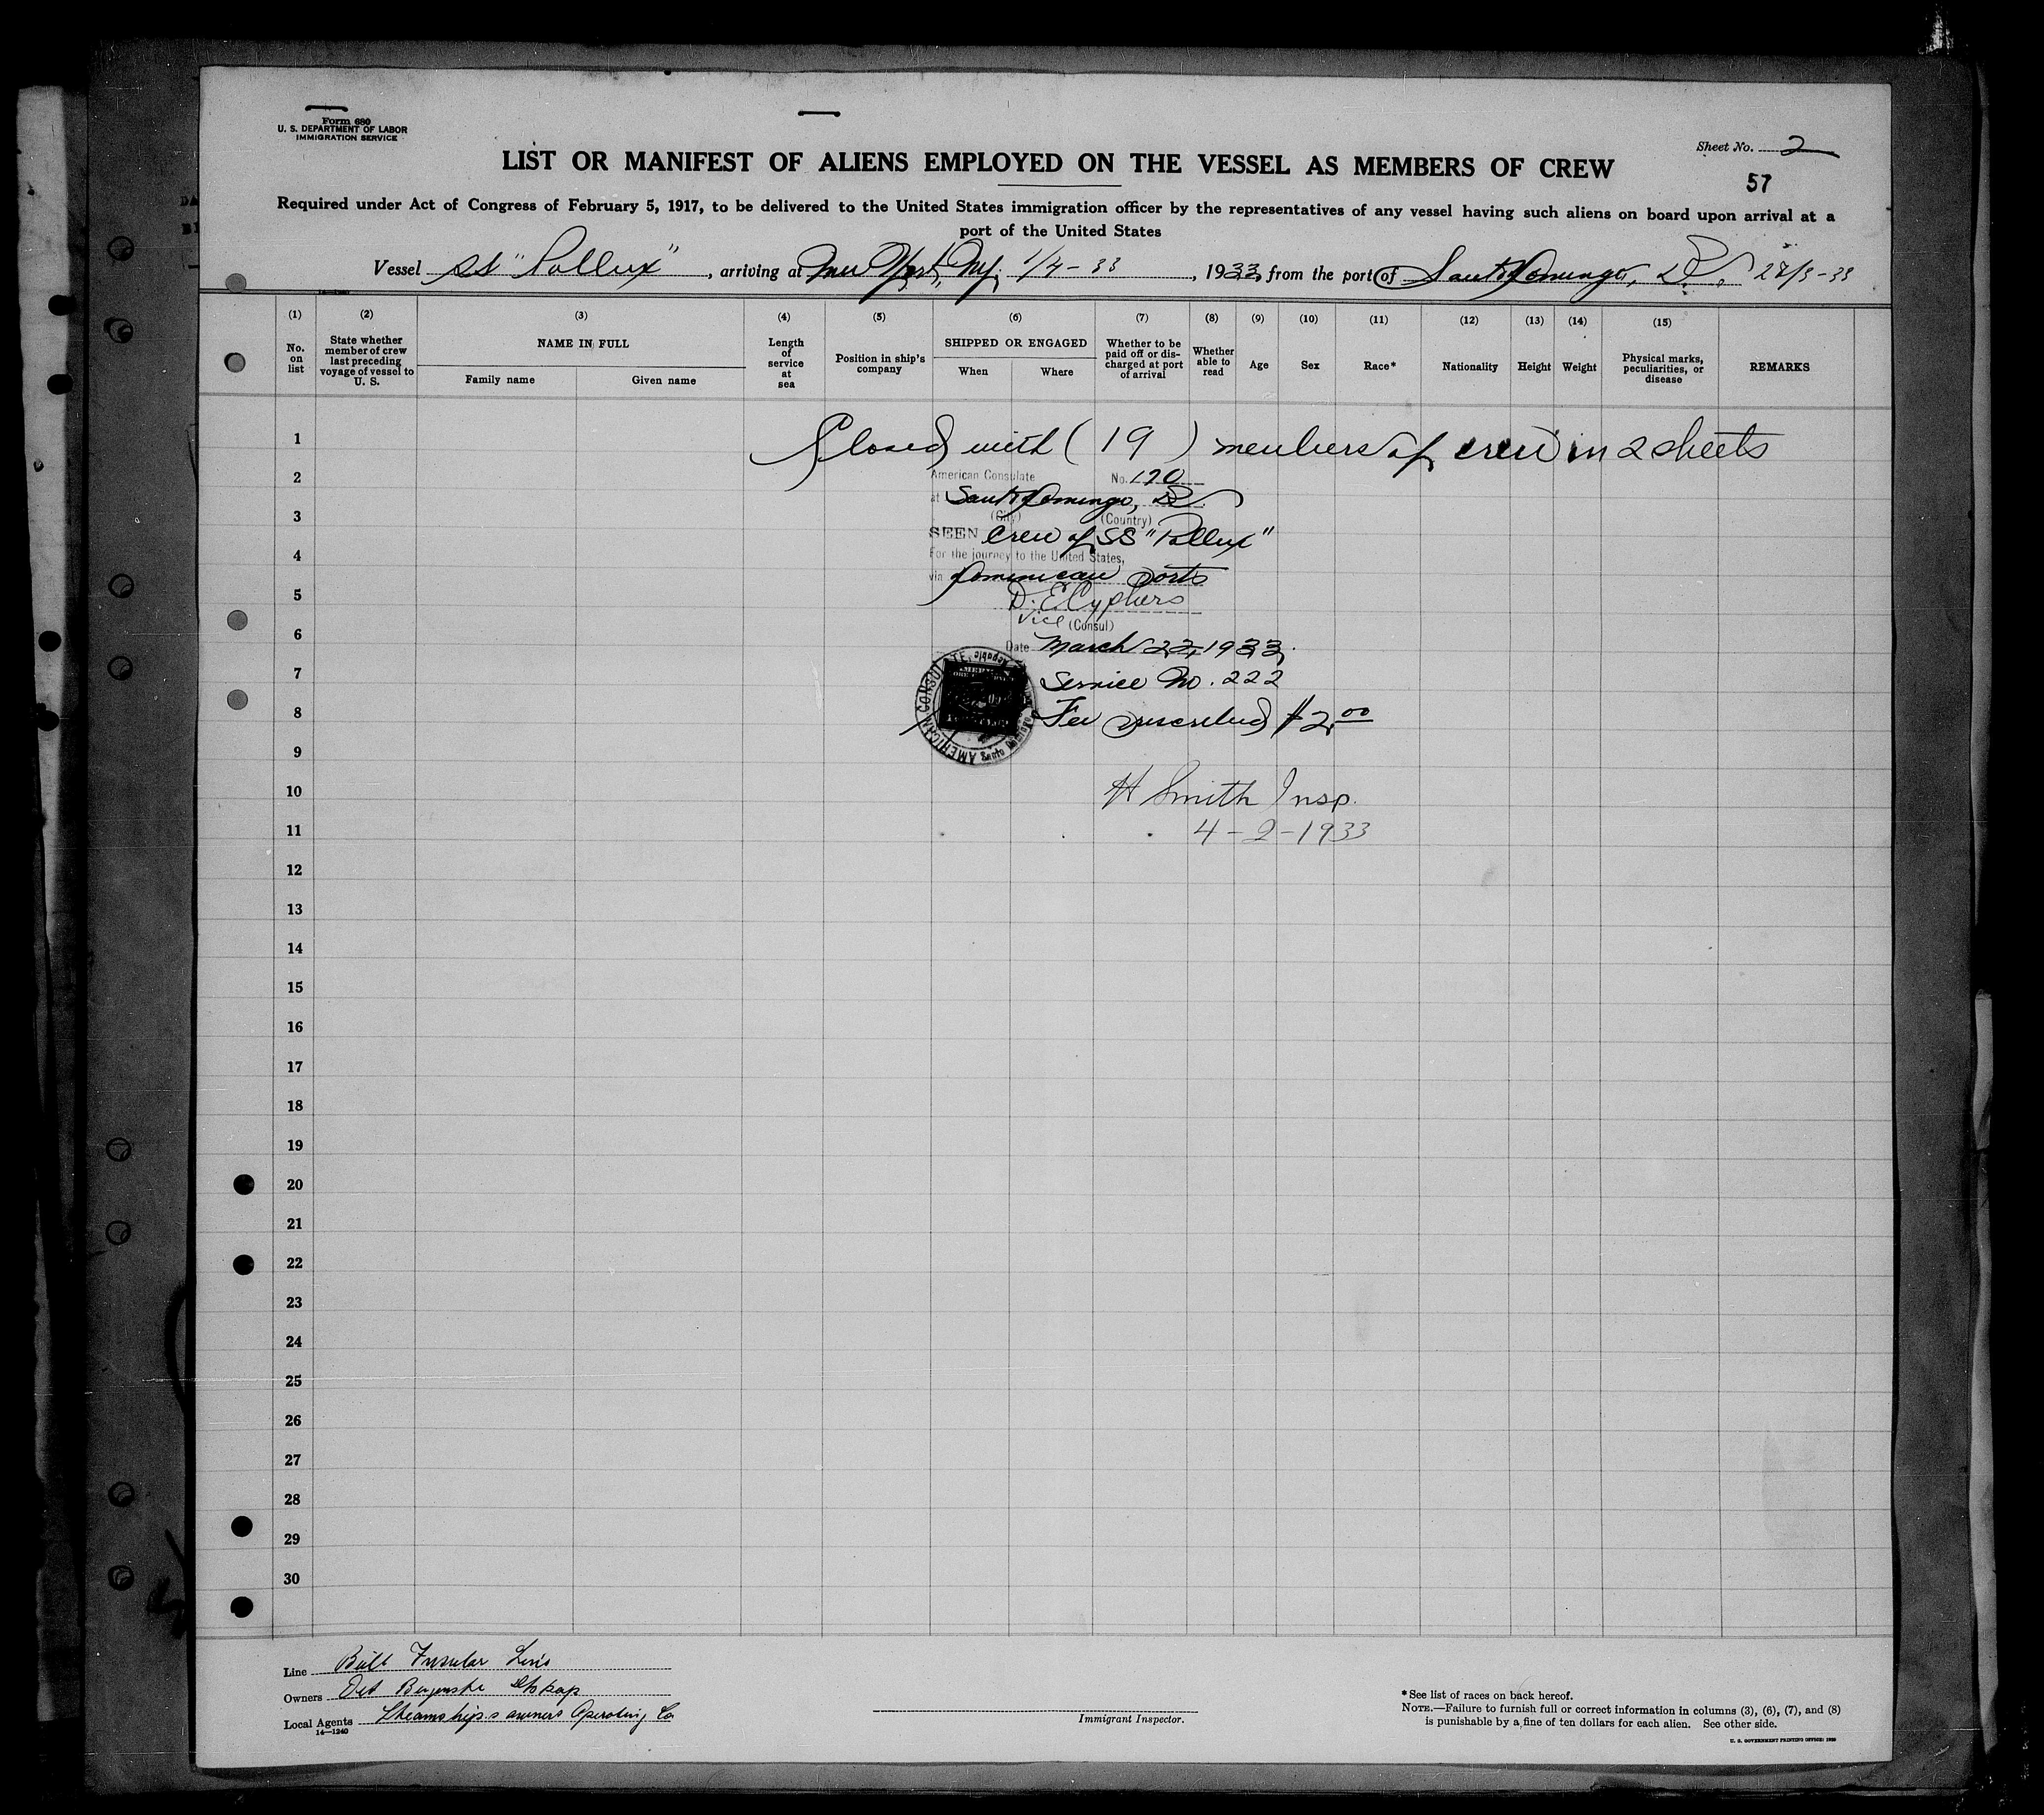 Form 680
U. S. DEPARTMENT OF LABOR
IMMIGRATION SERVICE
Sheet No. 2
57
LIST OR MANIFEST OF ALIENS EMPLOYED ON THE VESSEL AS MEMBERS OF CREW
Required under Act of Congress of February 5, 1917, to be delivered to the United States immigration officer by the representatives of any vessel having such aliens on board upon arrival at a
port of the United States
Vessel SS "Pollux", arriving at New York, NY. 1/4-33, 1933, from the port of Santo Domingo, D.R.
(1) (2) (3) (4) (5) (6) (7) (8) (9) (10) (11) (12) (13) (14) (15)
No. on list
State whether member of crew last preceding voyage of vessel to U. S.
NAME IN FULL
Family name Given name
Length of service at sea
Position in ship's company
SHIPPED OR ENGAGED
When Where
Whether to be paid off or discharged at port of arrival
Whether able to read
Age
Sex
Race*
Nationality
Height
Weight
Physical marks, peculiarities, or disease
REMARKS
1 Closed with (19) members of crew in 2 sheets
2 American Consulate No. 170
at Santo Domingo, D.R.
3 (City) (Country)
SEEN Crew of SS "Pollux"
4 For the journey to the United States,
via Dominican Ports
5 D. E. Cyphers
Vice (Consul)
6
Date March 22, 1933.
7 Service No. 222
8 Fee prescribed $2.00
AMERICAN CONSULATE
9
10 H Smith Insp.
11 4-2-1933
12
13
14
15
16
17
18
19
20
21
22
23
24
25
26
27
28
29
30
Line Bull Insular Line
Owners Det Bergenske
Local Agents Steamship owners Operating Co
14—1240
Immigrant Inspector.
*See list of races on back hereof.
NOTE.—Failure to furnish full or correct information in columns (3), (6), (7), and (8)
is punishable by a fine of ten dollars for each alien. See other side.
U. S. GOVERNMENT PRINTING OFFICE: